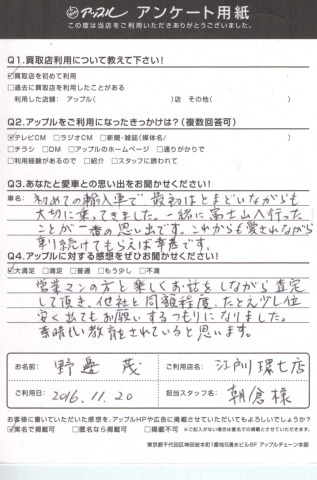 アップル アンケート用紙
この度は当店をご利用いただきありがとうございました。
Q1.買取店利用について教えて下さい!
☑買取店を初めて利用
□過去に買取店を利用したことがある
利用した店舗: アップル( )店 その他( )
Q2.アップルをご利用になったきっかけは?(複数回答可)
☑テレビCM □ラジオCM □新聞・雑誌(媒体名/ )
□チラシ □DM □アップルのホームページ □通りがかりで
□利用経験があるので □紹介 □スタッフに誘われて
Q3.あなたと愛車との思い出をお聞かせください!
車名: 初めての輸入車で最初はとまどいながらも
大切に乗ってきました。一緒に富士山へ行った
ことが一番の思い出です。これからも愛されながら
乗り続けてもらえば幸甚です。
Q4.アップルに対する感想をぜひお聞かせください!
☑大満足 □満足 □普通 □もう少し □不満
営業マンの方と楽しくお話をしながら査定
して頂き、他社と同額程度、たとえ少し位
安く出てもお願いするつもりになりました。
素晴しい教育をされていると思います。
お名前: 野邊 茂
ご利用店名: 江戸川環七店
ご利用日: 2016.11.20
担当スタッフ名: 朝倉様
お客様に書いていただいた感想を、アップルHPや広告に掲載させていただいてもよろしいでしょうか?
☑実名で掲載可 □匿名なら掲載可 □掲載不可 ※ご記入がない場合は匿名での掲載とさせていただきます。
東京都千代田区神田岩本町1番地5清水ビル6F アップルチェーン本部